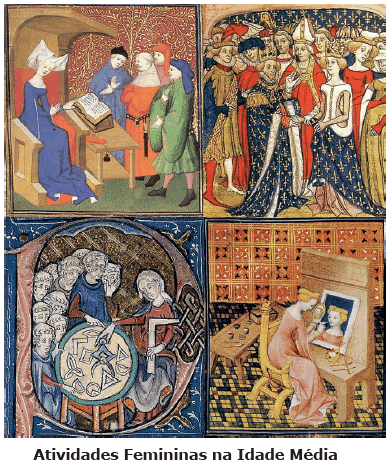 Atividades Femininas na Idade Média